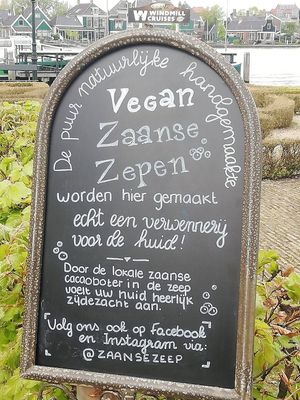 WINDMILL
CRUISES
De puur natuurlijke handgemaakte
Vegan
Zaanse
Zepen
worden hier gemaakt
echt een verwennerij
voor de huid!
Door de lokale zaanse
cacaoboter in de zeep
voelt uw huid heerlijk
zijdezacht aan.
Volg ons ook op Facebook
en Instagram via:
@ZAANSEZEEP